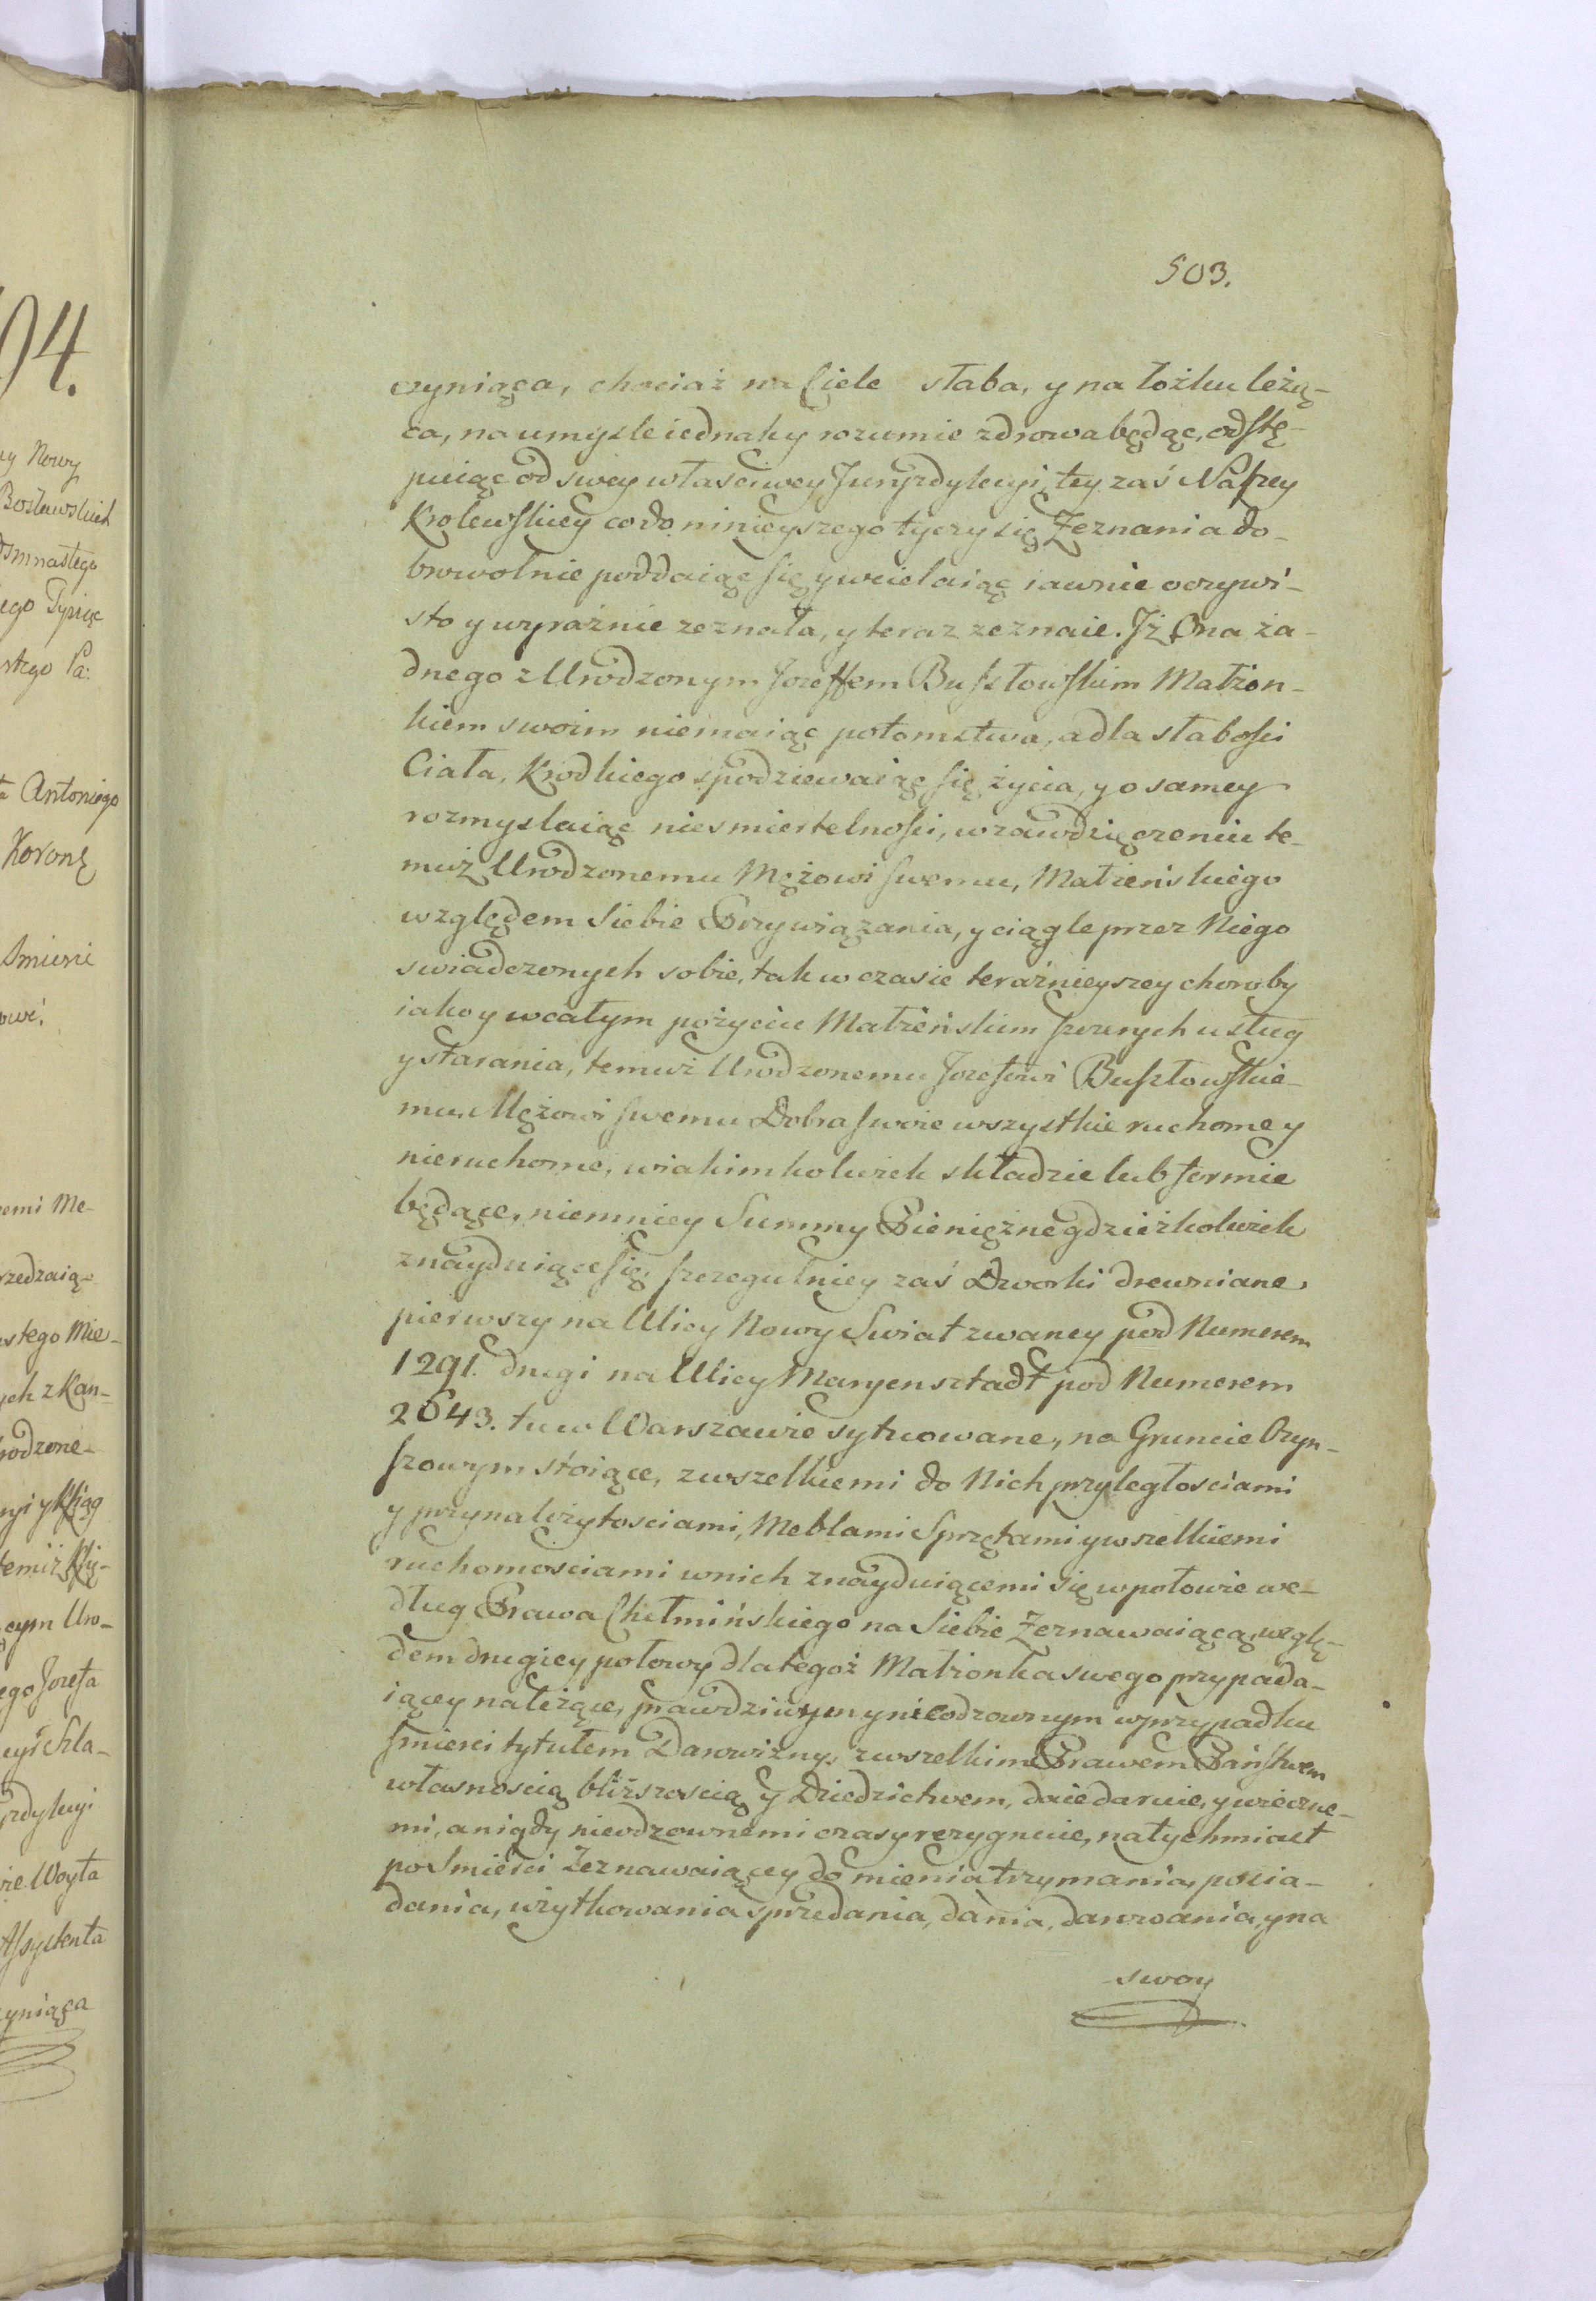 503.
czyniąca, chociaż na Ciele słaba, y na łożku leżą-
ca, na umysle iednak y rozumie zdrowa będąc, odstę-
puiąc od swey własciwey Juryzdykcyi, tey zaś Naszey
Krolewskiey co do ninieyszego tyczy się Zeznania do-
browolnie poddaiąc się y wcielaiąc iawnie oczywi-
sto y wyraźnie zeznała, y teraz zeznaie. Jż Ona ża-
dnego z Urodzonym Jozeffem Buszłowskim Małżon-
kiem swoim niemaiąc potomstwa, a dla słabości
Ciała, Krodkiego spodziewaiąc się życia, y o samey
rozmyslaiąc niesmiertelności, wzawdzięczeniu te-
muż Urodzonemu Mężowi swemu, Małżeńskiego
względem Siebie Przywiązania, y ciągle przez Niego
swiadczonych sobie, tak w czasie teraźnieyszey choroby
iako y wcałym pożyciu Małżeńskim szczerych usług
y starania, temuż Urodzonemu Jozefowi Buszłowskie-
mu, Mężowi swemu Dobra swoie wszystkie ruchome y
nieruchome, wiakimkolwiek składzie lub formie
będące, niemniey Summy Pieniężne gdzieżkolwiek
znayduiące się, szczegulniey zaś Dworki drewniane,
pierwszy na Ulicy Nowy Swiat zwaney pod Numerem
1291. drugi na Ulicy Maryensztadt pod Numerem
2643. tu w Warszawie sytuowane, na Gruncie Czyn-
szowym stoiące, zwszelkiemi do Nich przyległosciami
y przynależytosciami, Meblami Sprzętami y wszelkiemi
ruchomosciami wnich znayduiącemi się wpołowie we-
dług Prawa Chełmińskiego na Siebie Zeznawaiącą, wzglę-
dem drugiey połowy dla tegoż Małżonka swego przypada-
iącey należące, prawdziwym y nieodzownym wprzypadku
śmierci tytułem Darowizny, zwszelkim Prawem Państwem
własnoscią bliższoscią y Dziedzictwem, daie daruie, y wieczne-
mi, a nigdy nieodzownemi czasy rezygnuie, natychmiast
po Smierci Zeznawaiącey do mienia trzymania, posia-
dania, użytkowania sprzedania, dania, darowania, y na
swoy